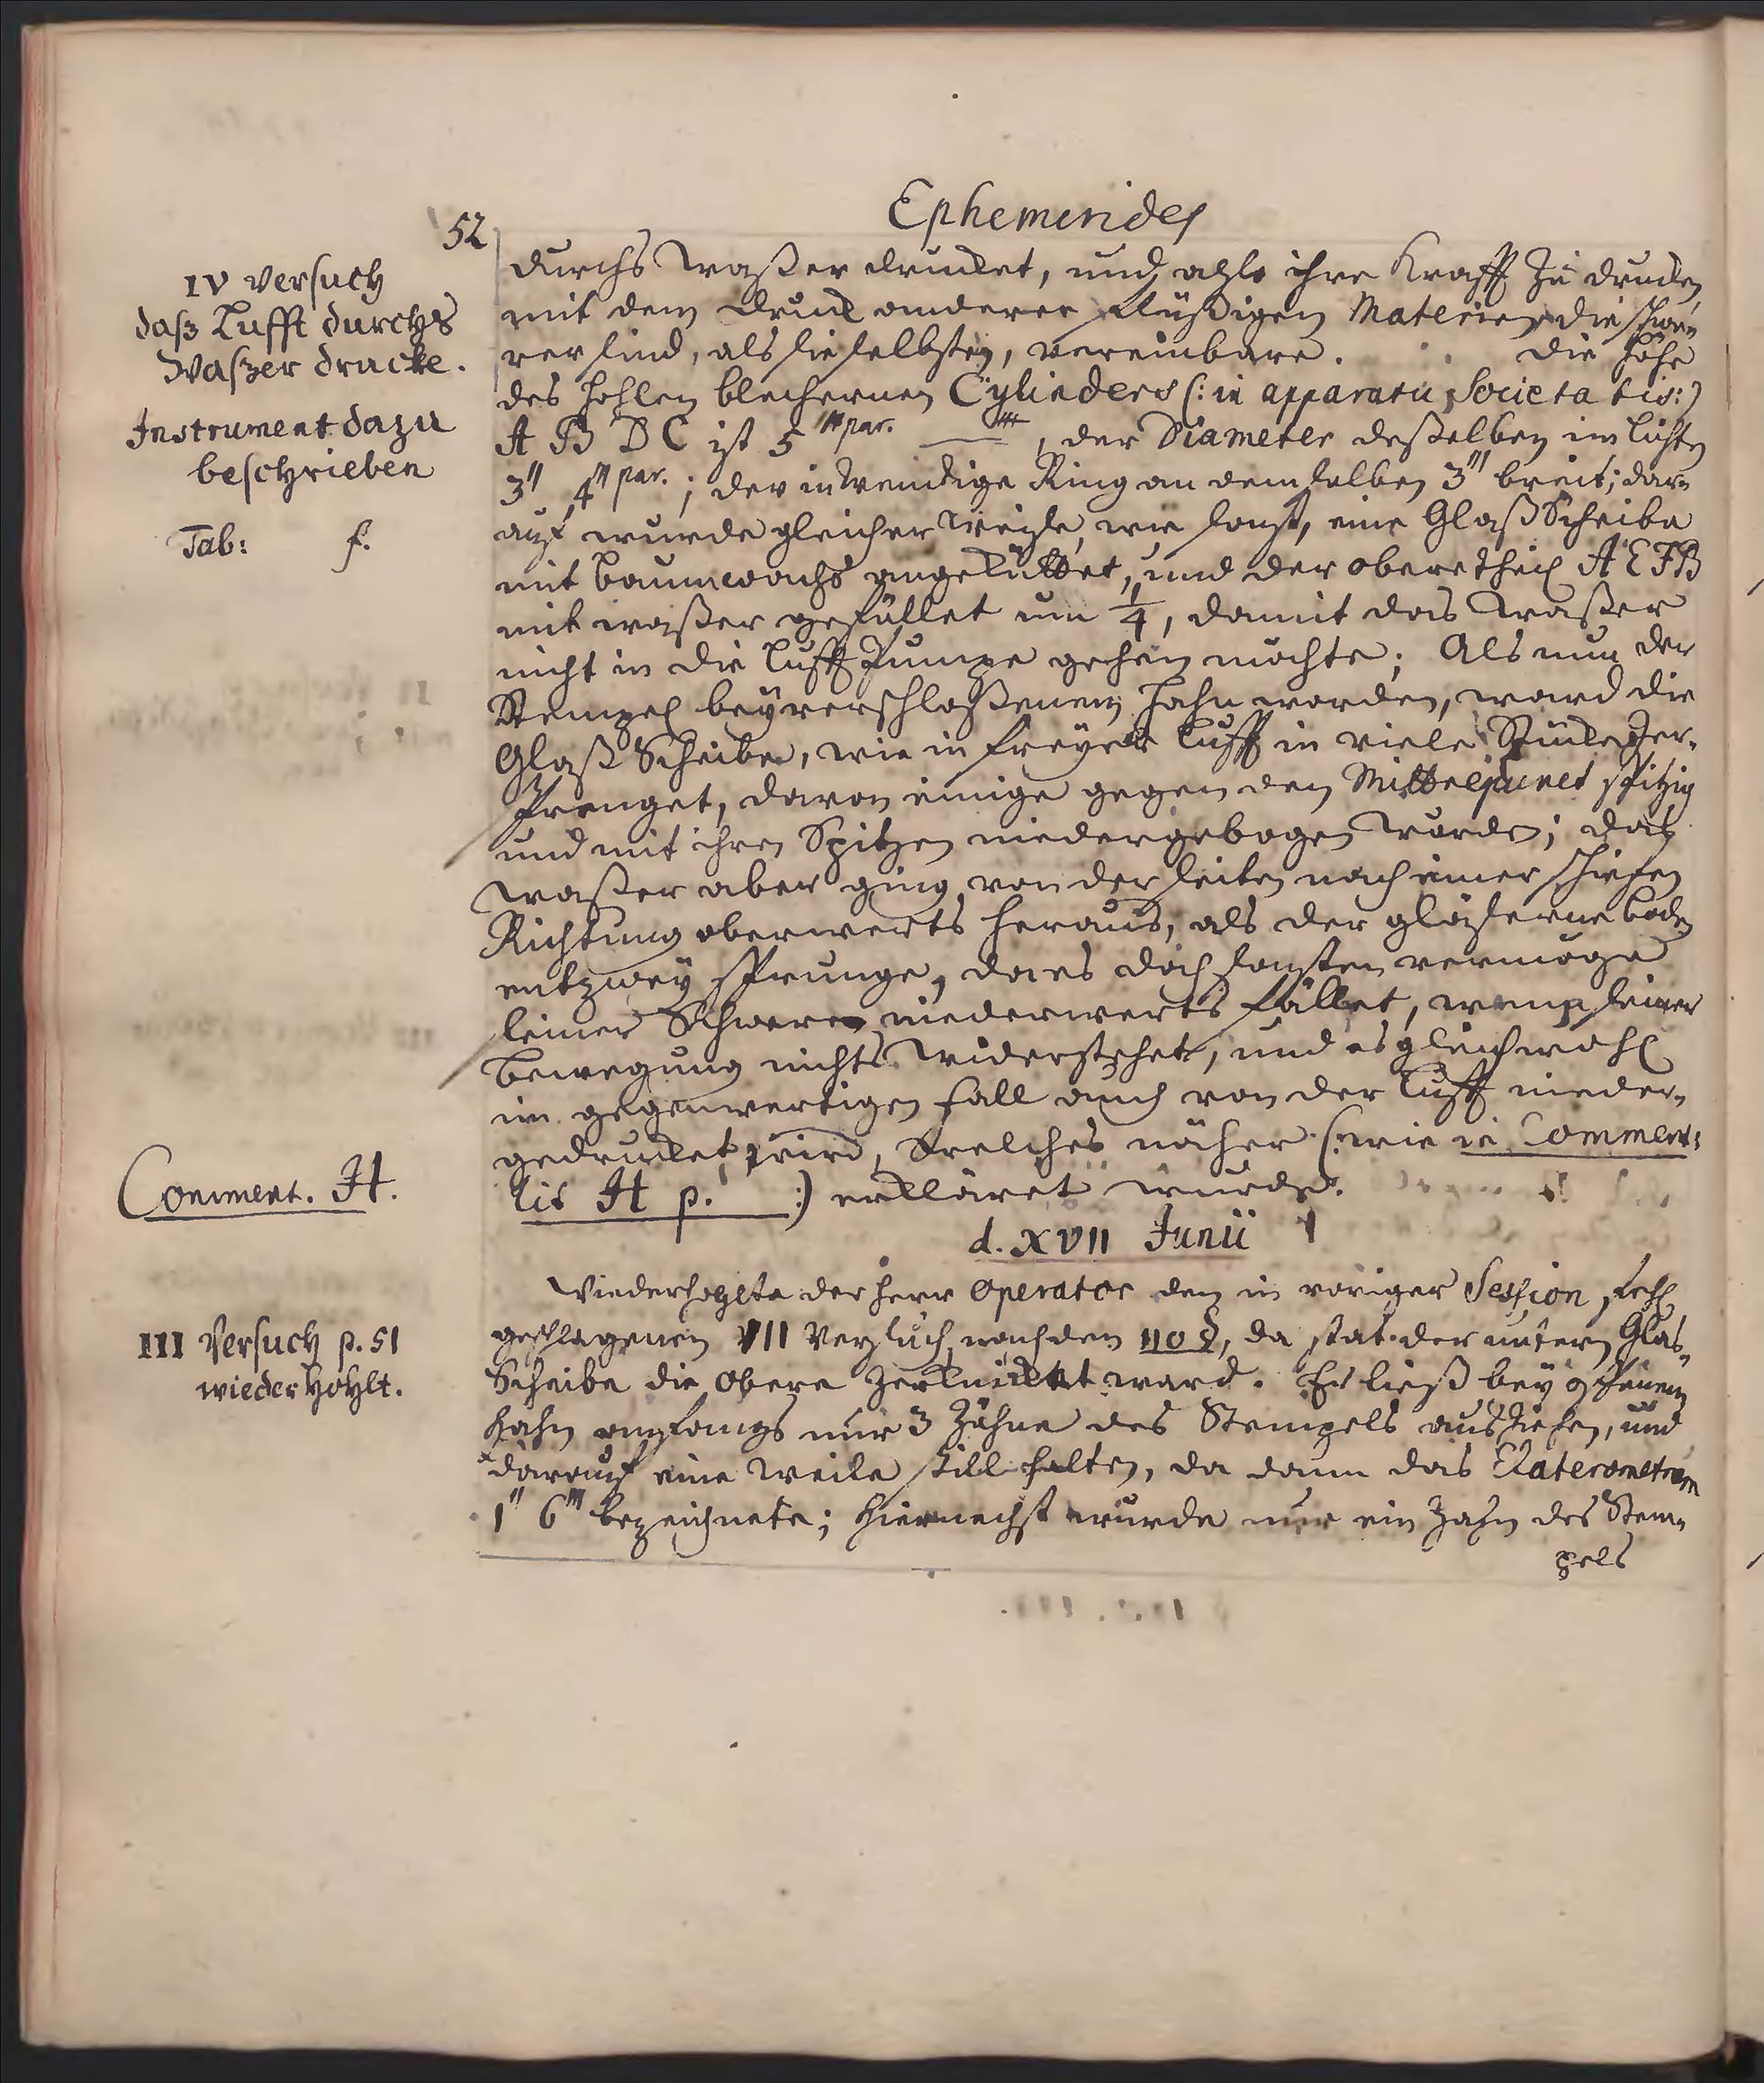 52
Ephemerides
IV Versuch
daß Lufft durchs
Waßer drucke.
Instrument dazu
beschrieben
Tab: f.
durchs Waßer drucket, und also ihre Krafft zu drucken
mit dem Druck anderer flüßigen Materien, die schwe-
rer sind, als sie selbsten, vereinbare. Die Höhe
des hohlen blechernen Cylinders (: in apparatu Societatis :)
A B D C ist 5''' par. , der Diameter deßelben im Lichten
3'' 4''' par.; der inwendige Ring an demselben 3''' breit; dar-
auf wurde gleicher Weise, wie sonst, eine Glaß Scheibe
mit Baumwachs angeküttet, und der obere Theil A E F B
mit Waßer gefüllet um 1/4, damit das Waßer
nicht in die Lufft Pumpe gehen möchte; Als nun der
Stempel bey verschloßenem Hahn worden, ward die
Glaß Scheibe, wie in freyer Lufft in viele Stücke zer-
sprenget, davon einige gegen den Mittelpunct spitzig
und mit ihren Spitzen niedergebogen wurden; das
Waßer aber ging von der Seiten nach einer schiefen
Richtung oberwerts heraus, als der gläserne Boden
entzwey sprunge, da es doch sonsten vermöge
seiner Schwere niederwerts fället, wenn seiner
Bewegung nichts widerstehet, und es gleichwohl
im gegenwertigen Fall auch von der Lufft nieder-
gedrucket wird, Welches näher (: wie in Comment:
lit H p. :) erkläret wurde.
Comment. H.
d. XVII Junii
III Versuch p. 51
wiederhohlt.
Wiederhohlte der Herr Operator den in voriger Session fehl
geschlagenen VII Versuch nach den 110 §, da stat der untern Glas-
Scheibe die Obere zerknicket ward. Er ließ bey offenem
Hahn anfangs nur 3 Zähne des Stempels ausziehen, und
darauf eine Weile still halten, da dann das Elaterometrum
1'' 6''' bezeichnete; hiernechst wurde nur ein Zahn des Stem-
pels